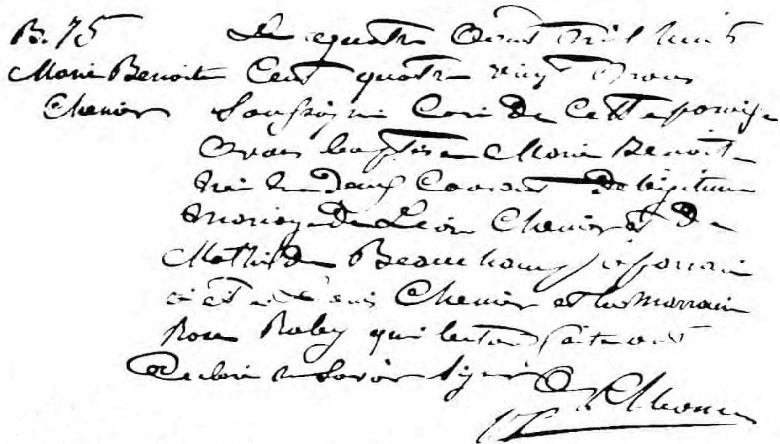 B. 75
Le quatre Aout mil huit
Marie Benoit
cent quatre vingt nous
Chenier
Soussigné Curé de cette paroisse
avons baptisé Marie Benoit
née le deux courant du légitime
mariage de Léon Chenier et de
Mathilde Beauchamp Le parrain
a été Chenier et la marraine
Rose Raby qui lecture faite ont
déclaré ne savoir signer